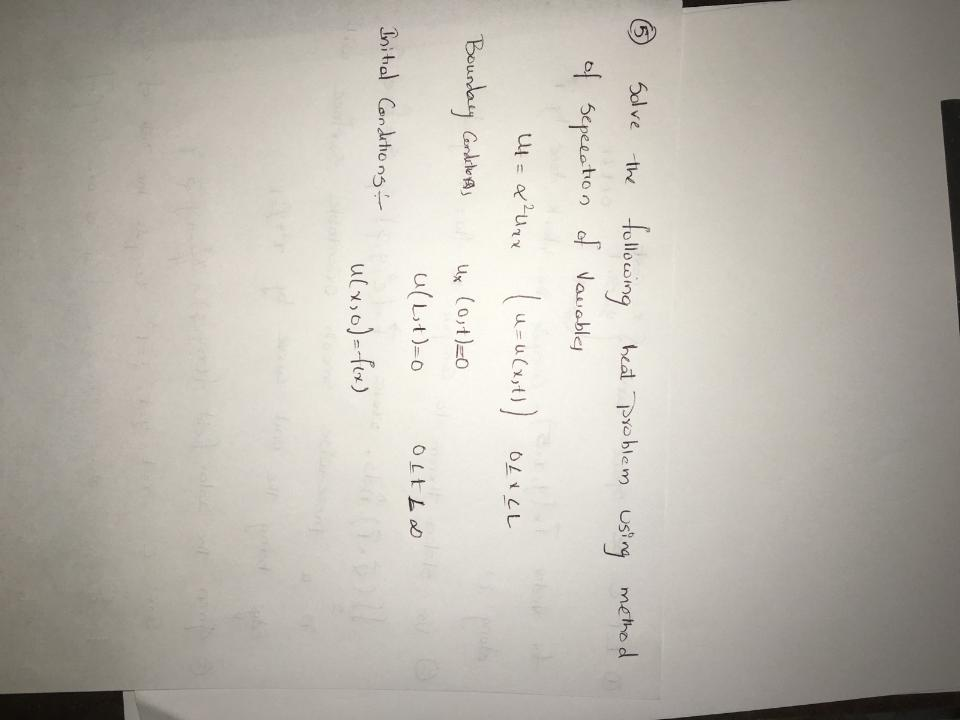 ⑤ Solve the following heat problem using method
of seperation of Variables
ut = α²uxx (u=u(x,t)) 0≤x≤L
Boundary Conditions ux (0,t)=0
u(L,t)=0 0≤t<∞
Initial Conditions:-
u(x,0)=f(x)